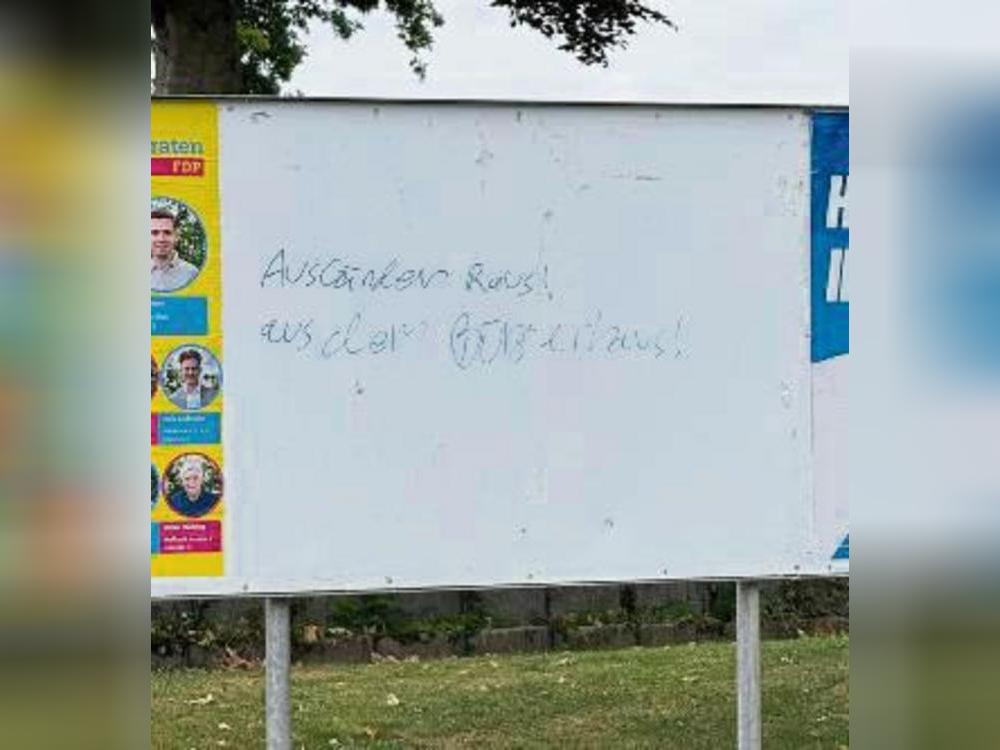 raten
FDP
Ausländer Raus!
aus dem Bürgerhaus!
H